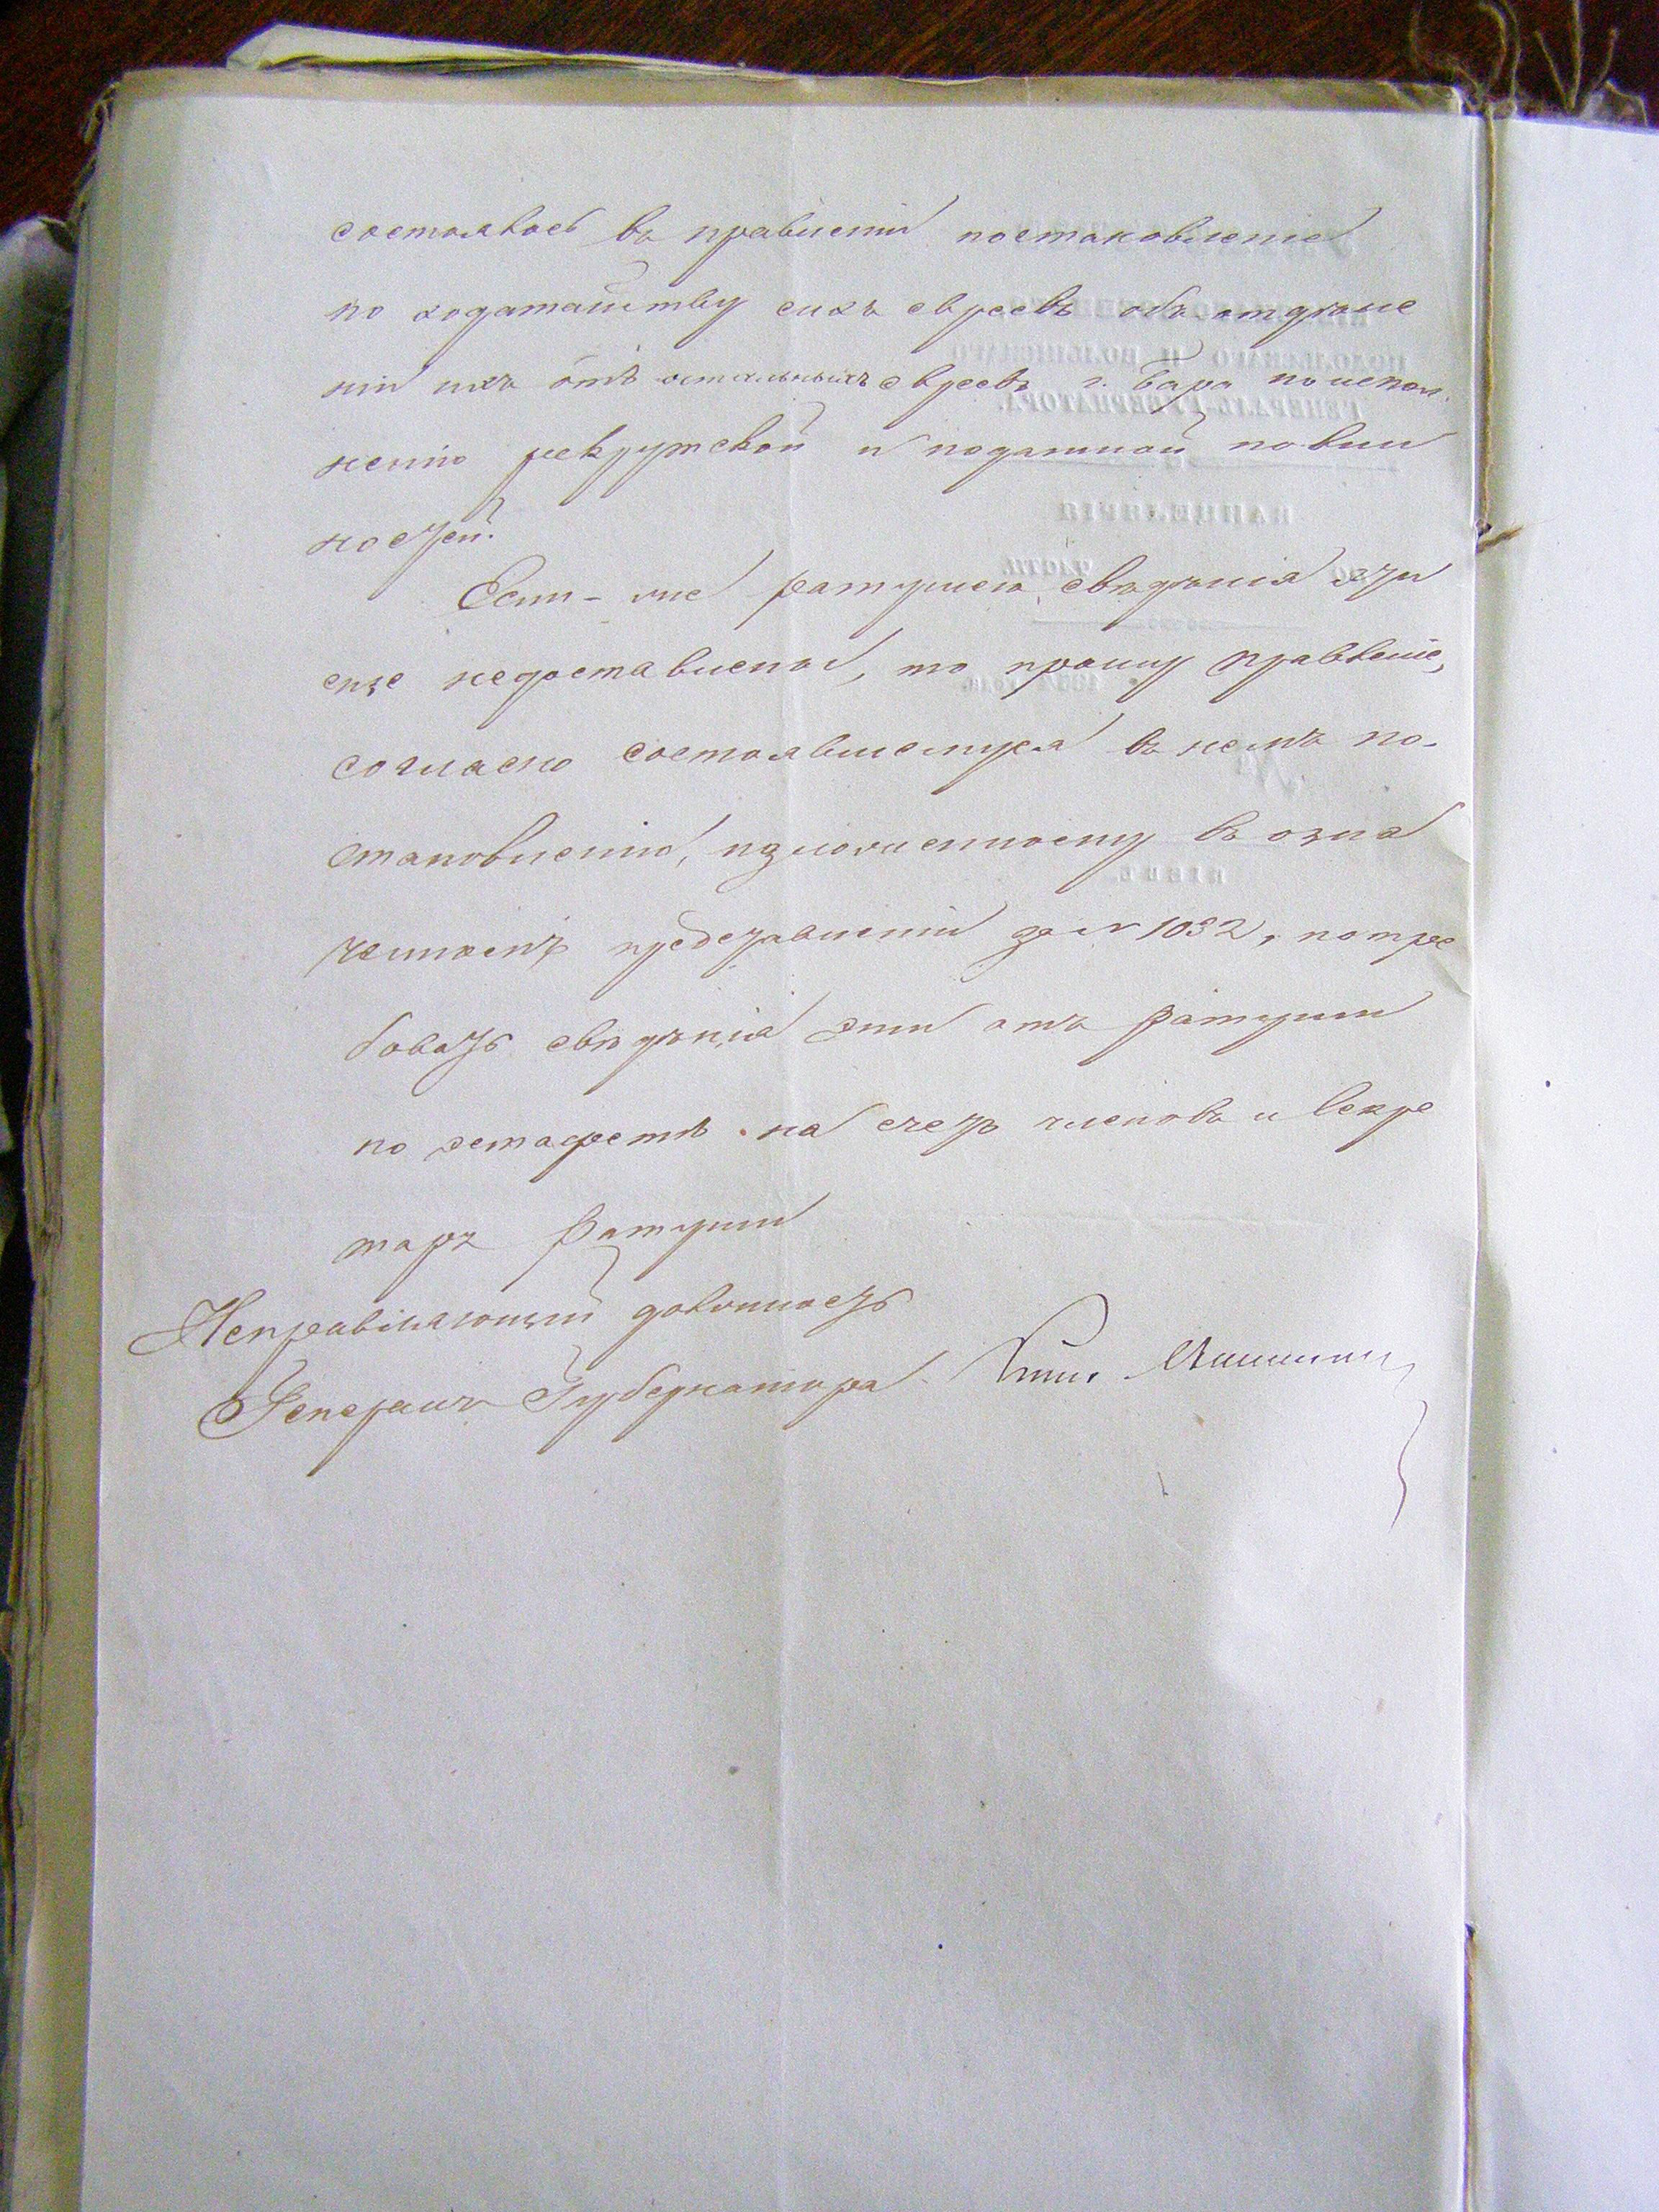 состоялось въ правленіи постановленіе
по ходатайству сихъ евреевъ объ отдѣле
ніи ихъ отъ остальныхъ евреевъ г. Бара по испол
ненію рекрутской и податной повин
ностей.
Если-же ратушею свѣдѣнія эти
еще недоставлены, то прошу правленіе,
согласно состоявшемуся въ немъ по-
становленію, изложенному въ озна
ченномъ представленіи за № 1032, потре
бовать свѣдѣнія эти отъ ратуши
по эстафетѣ на счетъ членовъ и секре
таря Ратуши
Исправляющій должность
Генералъ Губернатора Князь